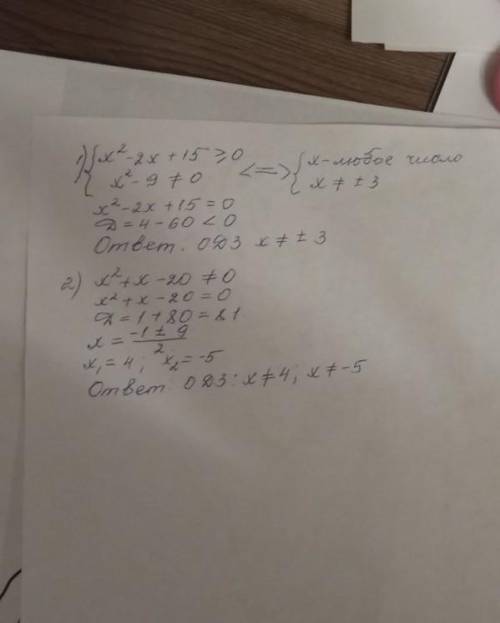 1) { x² - 2x + 15 ≥ 0 <=> { x - любое число
x² - 9 ≠ 0 x ≠ ± 3
x² - 2x + 15 = 0
D = 4 - 60 < 0
Ответ. ОДЗ x ≠ ± 3
2) x² + x - 20 ≠ 0
x² + x - 20 = 0
D = 1 + 80 = 81
x = (-1 ± 9) / 2
x₁ = 4; x₂ = -5
Ответ: ОДЗ: x ≠ 4; x ≠ -5